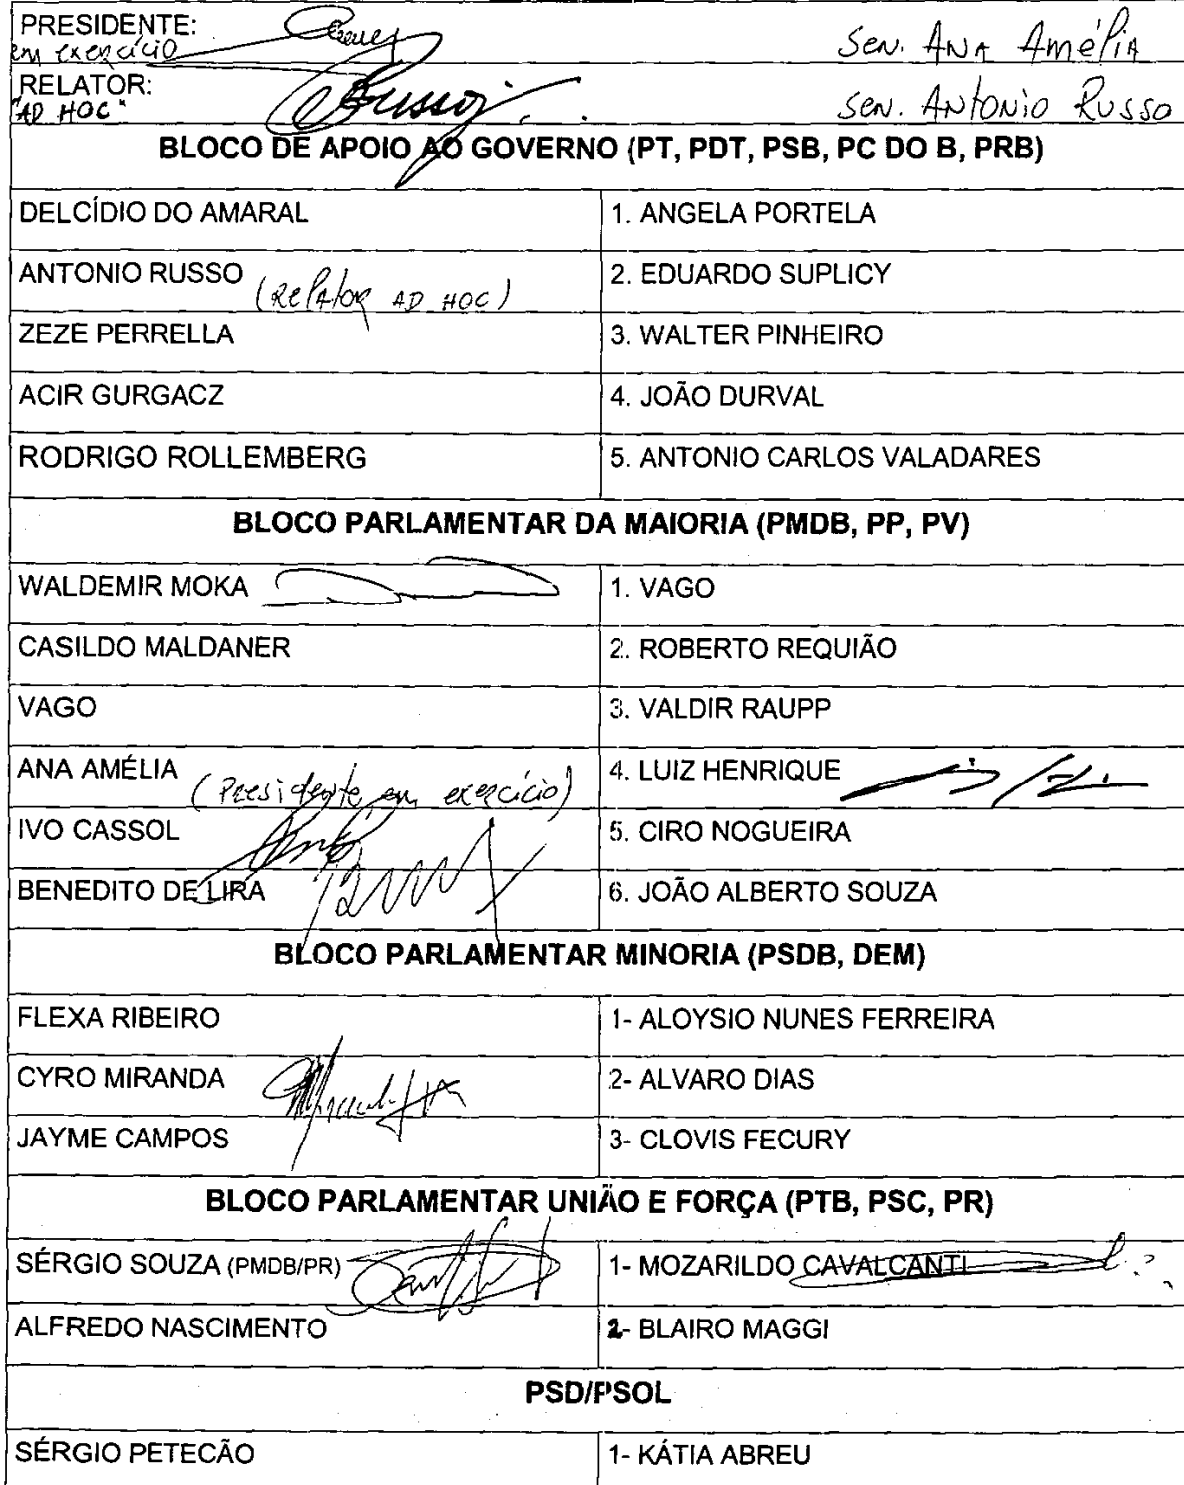 PRESIDENTE:
em exercício
Sen. Ana Amélia
RELATOR:
"AD HOC"
Sen. Antonio Russo
BLOCO DE APOIO AO GOVERNO (PT, PDT, PSB, PC DO B, PRB)
DELCÍDIO DO AMARAL
1. ANGELA PORTELA
ANTONIO RUSSO (Relator AD HOC)
2. EDUARDO SUPLICY
ZEZE PERRELLA
3. WALTER PINHEIRO
ACIR GURGACZ
4. JOÃO DURVAL
RODRIGO ROLLEMBERG
5. ANTONIO CARLOS VALADARES
BLOCO PARLAMENTAR DA MAIORIA (PMDB, PP, PV)
WALDEMIR MOKA
1. VAGO
CASILDO MALDANER
2. ROBERTO REQUIÃO
VAGO
3. VALDIR RAUPP
ANA AMÉLIA (Presidente em exercício)
4. LUIZ HENRIQUE
IVO CASSOL
5. CIRO NOGUEIRA
BENEDITO DE LIRA
6. JOÃO ALBERTO SOUZA
BLOCO PARLAMENTAR MINORIA (PSDB, DEM)
FLEXA RIBEIRO
1- ALOYSIO NUNES FERREIRA
CYRO MIRANDA
2- ALVARO DIAS
JAYME CAMPOS
3- CLOVIS FECURY
BLOCO PARLAMENTAR UNIÃO E FORÇA (PTB, PSC, PR)
SÉRGIO SOUZA (PMDB/PR)
1- MOZARILDO CAVALCANTI
ALFREDO NASCIMENTO
2- BLAIRO MAGGI
PSD/PSOL
SÉRGIO PETECÃO
1- KÁTIA ABREU